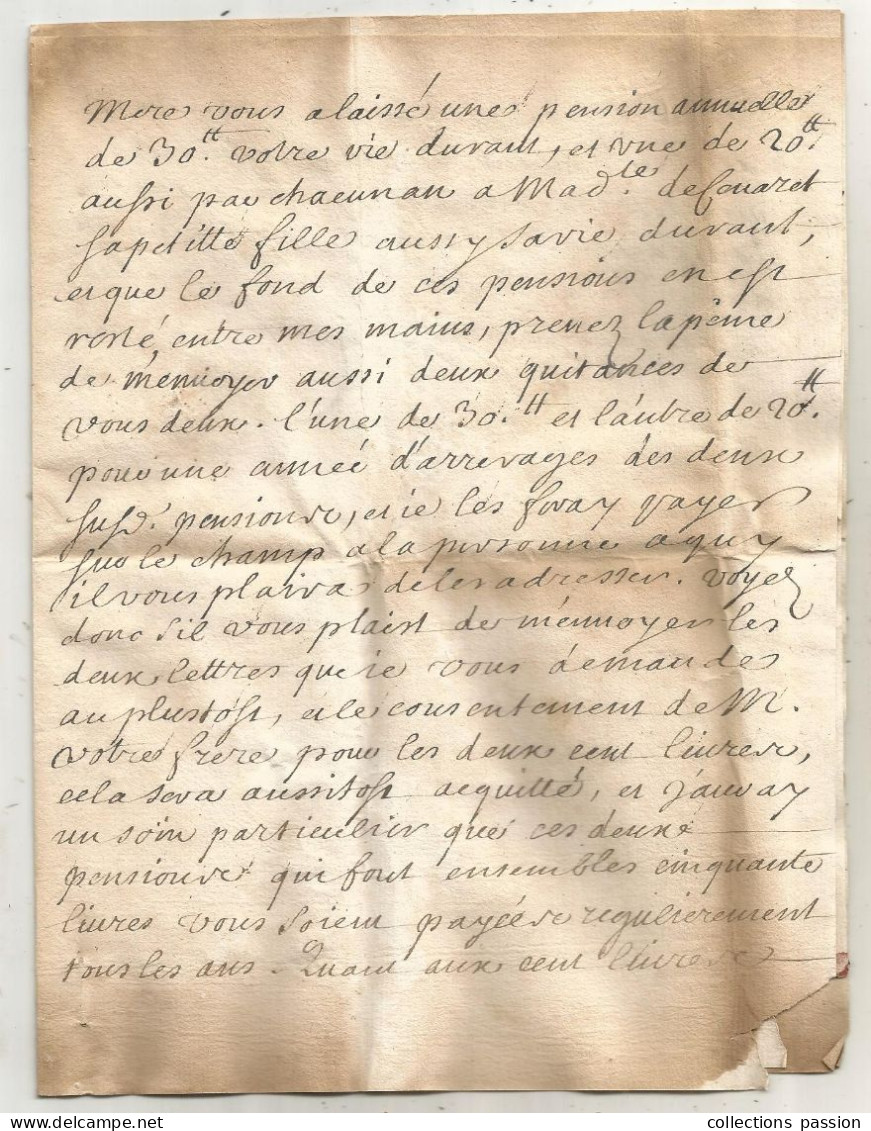 Mere vous a laissé une pension annuelle
de 30.tt votre vie durant, et vne de 20tt.
aussi par chacun an a Madlle de
sa petitte fille aussy sa vie durant,
et que le fond de ces pensions en est
resté entre mes mains, prenez la pêine
de m'ennoyer aussi deux quitances de
vous deux. l'une de 30.tt et l'autre de 20tt.
pour une année d'arrerages des deux
susd. pensions, et ie les feray payer
sur le champ a la personne a quy
il vous plaira de les adresser. voyez
donc s'il vous plaist de m'ennoyer les
deux lettres que ie vous demandes
au plustost, et le consentement de M.
votre frere pour les deux cent liures,
cela sera aussitost acquitté, et j'auray
un soin particulier que ces deux
pensions qui font ensembles cinquante
liures vous soient payées regulierement
tous les ans. Quant aux cent liures
collections passion